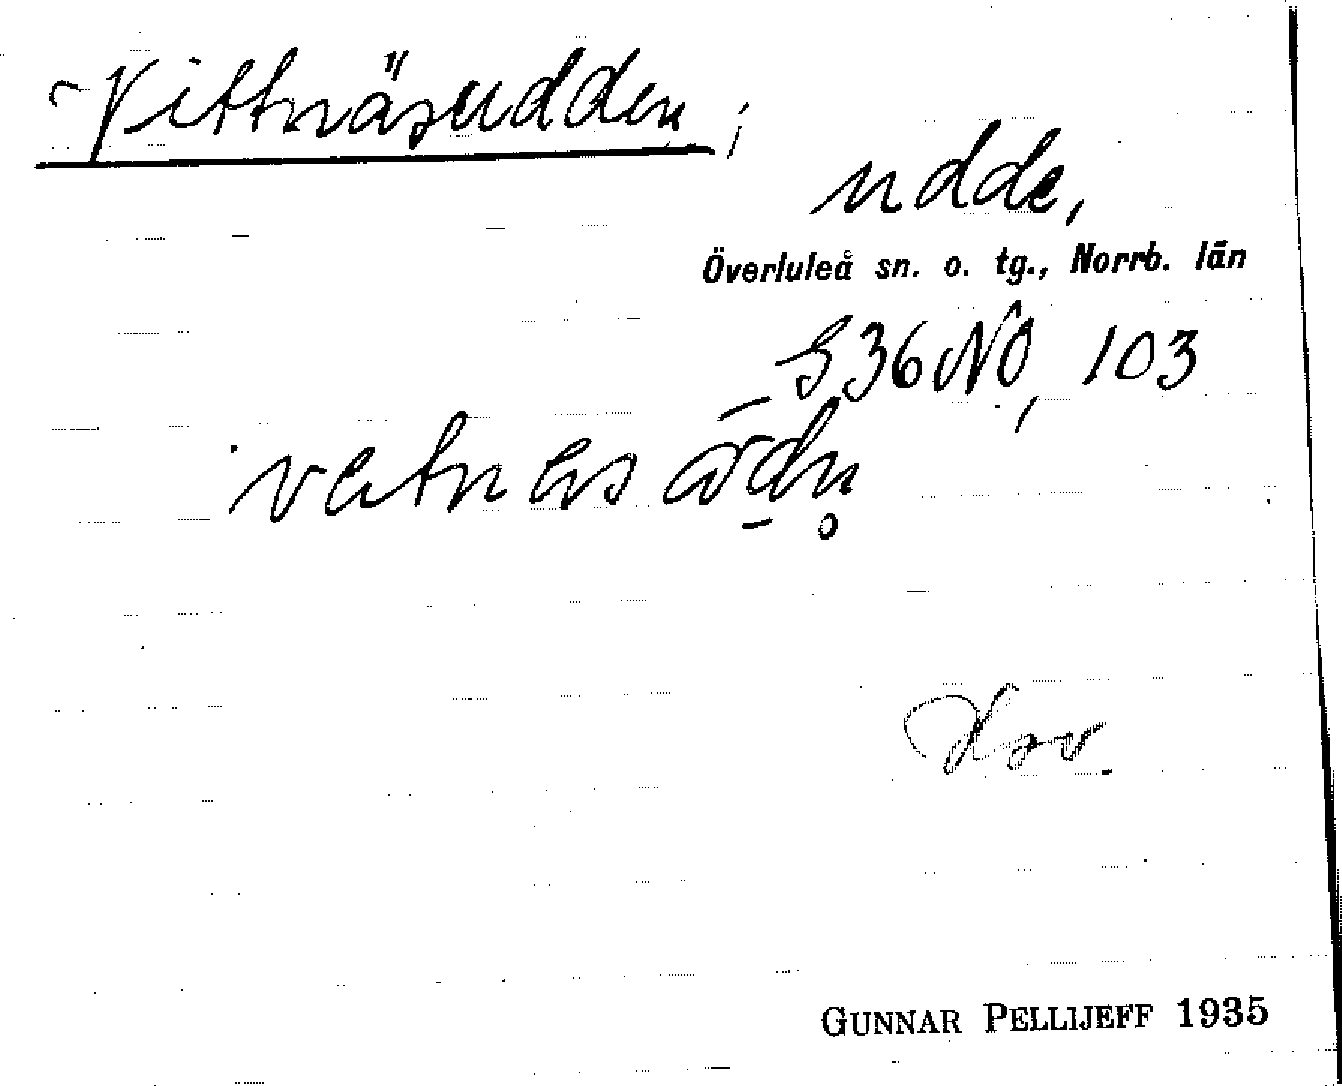 Vittnäsudden;
udde,
Överluleå sn. o. tg., Norrb. län
S 36 NO, 103
GUNNAR PELLIJEFF 1935